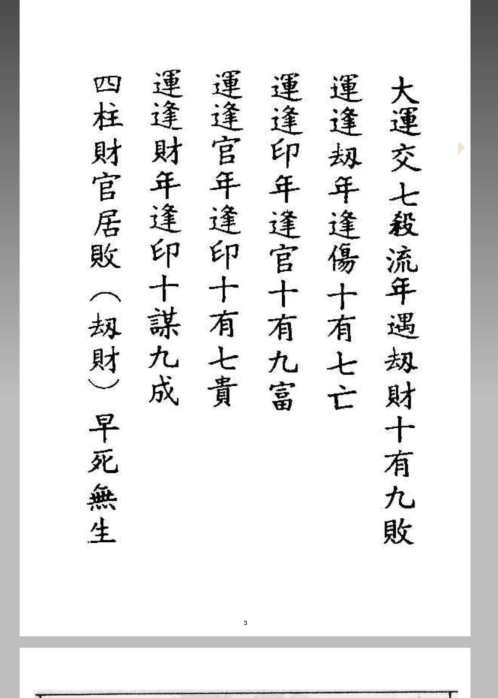 大運交七殺流年遇刼財十有九敗
運逢刼年逢傷十有七亡
運逢印年逢官十有九富
運逢官年逢印十有七貴
運逢財年逢印十謀九成
四柱財官居敗（刼財）早死無生
3